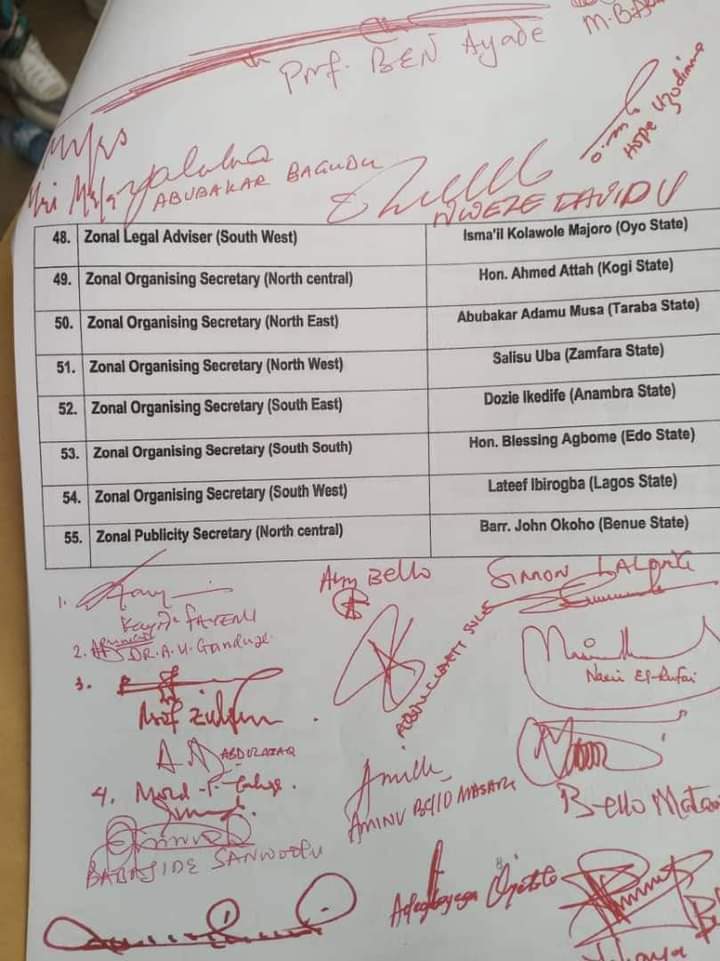 Prof. BEN Ayade
Hope Uzodimma
ABUBAKAR BAGUDU
NWEZE DAVIDU
48. Zonal Legal Adviser (South West) Isma'il Kolawole Majoro (Oyo State)
49. Zonal Organising Secretary (North central) Hon. Ahmed Attah (Kogi State)
50. Zonal Organising Secretary (North East) Abubakar Adamu Musa (Taraba State)
51. Zonal Organising Secretary (North West) Salisu Uba (Zamfara State)
52. Zonal Organising Secretary (South East) Dozie Ikedife (Anambra State)
53. Zonal Organising Secretary (South South) Hon. Blessing Agbome (Edo State)
54. Zonal Organising Secretary (South West) Lateef Ibirogba (Lagos State)
55. Zonal Publicity Secretary (North central) Barr. John Okoho (Benue State)
Bello SIMON LALONG
1.
2. DR. A. U. Ganduje
Nasir El-Rufai
3.
Prof Zulum
ABDULRAZAQ
4.
AMINU BELLO MASARI
Bello
BABAJIDE SANWOOLU
Adegboyega Oyetola